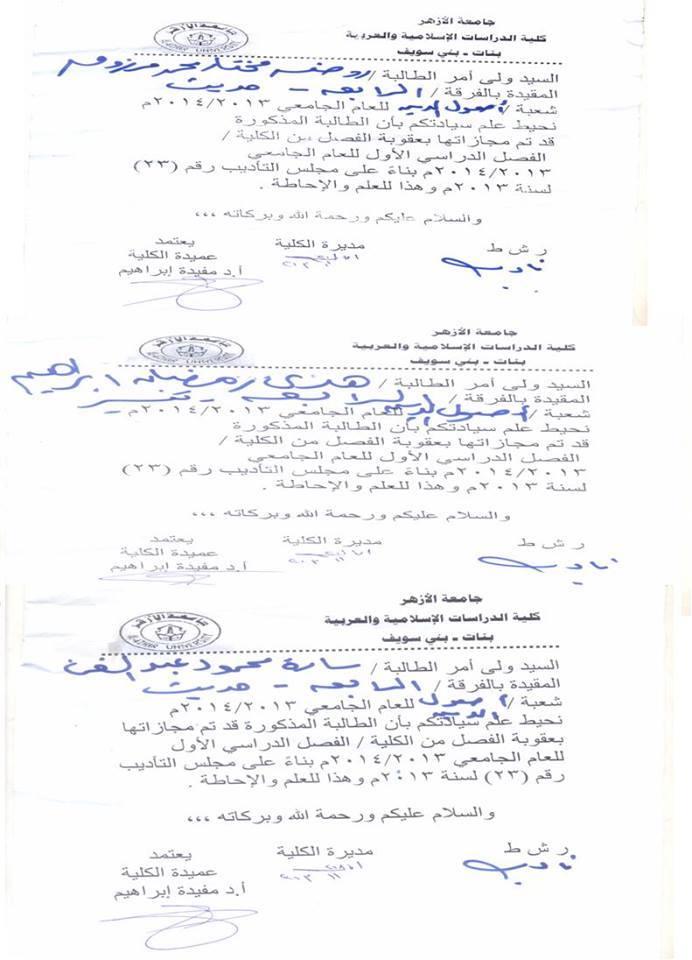 جامعة الأزهر
كلية الدراسات الإسلامية والعربية
بنات - بني سويف
السيد ولى أمر الطالبة / روضه مختار محمد مرزوق
المقيدة بالفرقة / الرابعه - حديث
شعبة / أصول الدين للعام الجامعي ٢٠١٤/٢٠١٣م
نحيط علم سيادتكم بأن الطالبة المذكورة
قد تم مجازاتها بعقوبة الفصل من الكلية /
الفصل الدراسي الأول للعام الجامعي
٢٠١٤/٢٠١٣م بناءً على مجلس التأديب رقم (٢٣)
لسنة ٢٠١٣م وهذا للعلم والإحاطة .
والسلام عليكم ورحمة الله وبركاته ،،،
ر ش ط
مديرة الكلية
يعتمد
عميدة الكلية
أ.د مفيدة إبراهيم
جامعة الأزهر
كلية الدراسات الإسلامية والعربية
بنات - بني سويف
السيد ولى أمر الطالبة / هدى رمضان ابراهيم
المقيدة بالفرقة / الرابعه - تفسير
شعبة / أصول الدين للعام الجامعي ٢٠١٤/٢٠١٣م
نحيط علم سيادتكم بأن الطالبة المذكورة
قد تم مجازاتها بعقوبة الفصل من الكلية /
الفصل الدراسي الأول للعام الجامعي
٢٠١٤/٢٠١٣م بناءً على مجلس التأديب رقم (٢٣)
لسنة ٢٠١٣م وهذا للعلم والإحاطة .
والسلام عليكم ورحمة الله وبركاته ،،،
ر ش ط
مديرة الكلية
يعتمد
عميدة الكلية
أ.د مفيدة إبراهيم
جامعة الأزهر
كلية الدراسات الإسلامية والعربية
بنات - بني سويف
السيد ولى أمر الطالبة / سارة محمود عبد الغنى
المقيدة بالفرقة / الرابعه - حديث
شعبة / أصول الدين للعام الجامعي ٢٠١٤/٢٠١٣م
نحيط علم سيادتكم بأن الطالبة المذكورة قد تم مجازاتها
بعقوبة الفصل من الكلية / الفصل الدراسي الأول
للعام الجامعي ٢٠١٤/٢٠١٣م بناءً على مجلس التأديب
رقم (٢٣) لسنة ٢٠١٣م وهذا للعلم والإحاطة .
والسلام عليكم ورحمة الله وبركاته ،،،
ر ش ط
مديرة الكلية
يعتمد
عميدة الكلية
أ.د مفيدة إبراهيم